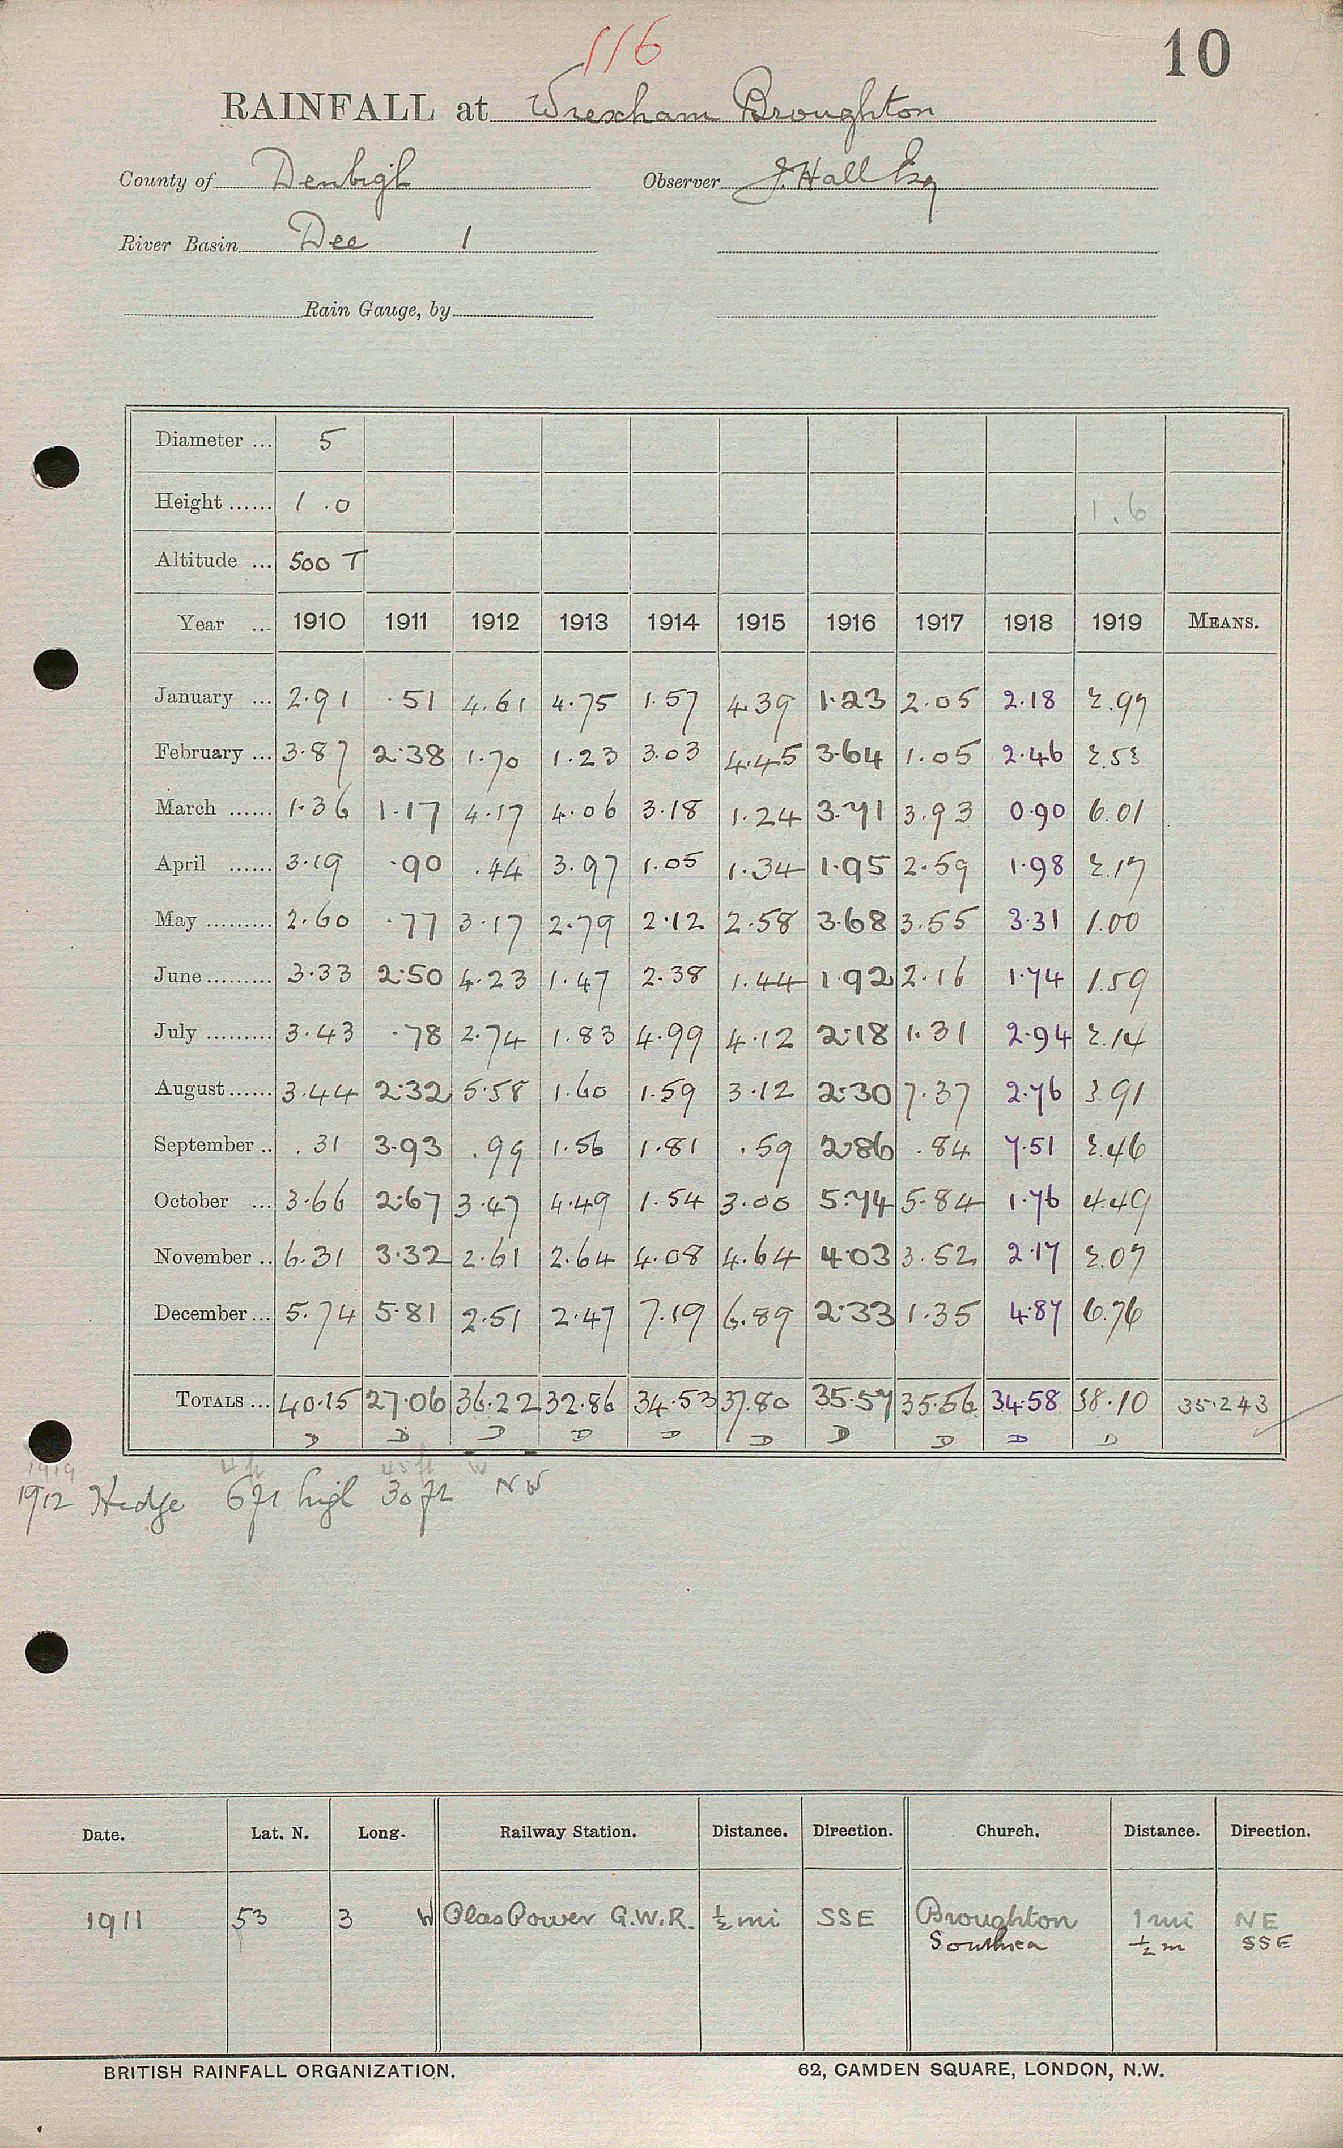 116
10
RAINFALL at Wrexham Broughton
County of Denbigh Observer J. Hall Esq
River Basin Dee 1
Rain Gauge, by
Diameter ... 5
Height ...... 1.0 1.6
Altitude ... 500 T
Year ... 1910 1911 1912 1913 1914 1915 1916 1917 1918 1919 MEANS.
January ... 2.91 .51 4.61 4.75 1.57 4.39 1.23 2.05 2.18 2.97
February ... 3.87 2.38 1.70 1.23 3.03 4.45 3.64 1.05 2.46 2.53
March ...... 1.36 1.17 4.17 4.06 3.18 1.24 3.71 3.93 0.90 6.01
April ...... 3.19 .90 .44 3.97 1.05 1.34 1.95 2.59 1.98 2.17
May ......... 2.60 .77 3.17 2.79 2.12 2.58 3.68 3.55 3.31 1.00
June ......... 3.33 2.50 4.23 1.47 2.38 1.44 1.92 2.16 1.74 1.59
July ......... 3.43 .78 2.74 1.83 4.99 4.12 2.18 1.31 2.94 2.14
August...... 3.44 2.32 5.58 1.60 1.59 3.12 2.30 7.37 2.76 3.91
September .. .31 3.93 .99 1.56 1.81 .59 2.86 .84 7.51 2.46
October ... 3.66 2.67 3.47 4.49 1.54 3.00 5.74 5.84 1.76 4.49
November .. 6.31 3.32 2.61 2.64 4.08 4.64 4.03 3.52 2.17 2.07
December ... 5.74 5.81 2.51 2.47 7.19 6.89 2.33 1.35 4.87 6.76
TOTALS ... 40.15 27.06 36.22 32.86 34.53 37.80 35.57 35.56 34.58 38.10 35.243
D D D D D D D D D D
1919 4 ft 45 ft W
1912 Hedge 6ft high 30 ft NW
Date. Lat. N. Long. Railway Station. Distance. Direction. Church. Distance. Direction.
1911 53 3 W Plas Power G.W.R. ½ mi SSE Broughton 1 mi NE
Southsea ½ m SSE
BRITISH RAINFALL ORGANIZATION. 62, CAMDEN SQUARE, LONDON, N.W.